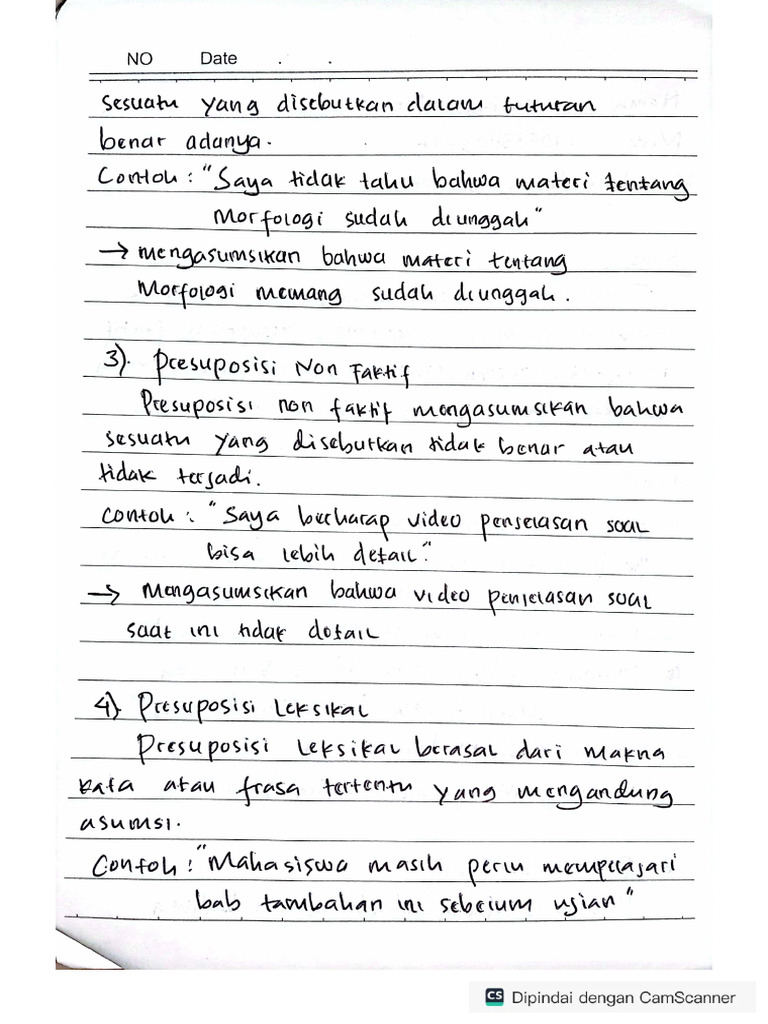 NO Date . .
sesuatu yang disebutkan dalam tuturan
benar adanya.
Contoh : "Saya tidak tahu bahwa materi tentang
Morfologi sudah diunggah"
→ mengasumsikan bahwa materi tentang
Morfologi memang sudah diunggah.
3). Presuposisi Non Faktif
Presuposisi non faktif mengasumsikan bahwa
sesuatu yang disebutkan tidak benar atau
tidak terjadi.
Contoh : "Saya berharap video penjelasan soal
bisa lebih detail."
→ Mengasumsikan bahwa video penjelasan soal
saat ini tidak detail
4). Presuposisi Leksikal
Presuposisi Leksikal berasal dari makna
kata atau frasa tertentu yang mengandung
asumsi.
Contoh : "Mahasiswa masih perlu mempelajari
bab tambahan ini sebelum ujian"
CS Dipindai dengan CamScanner